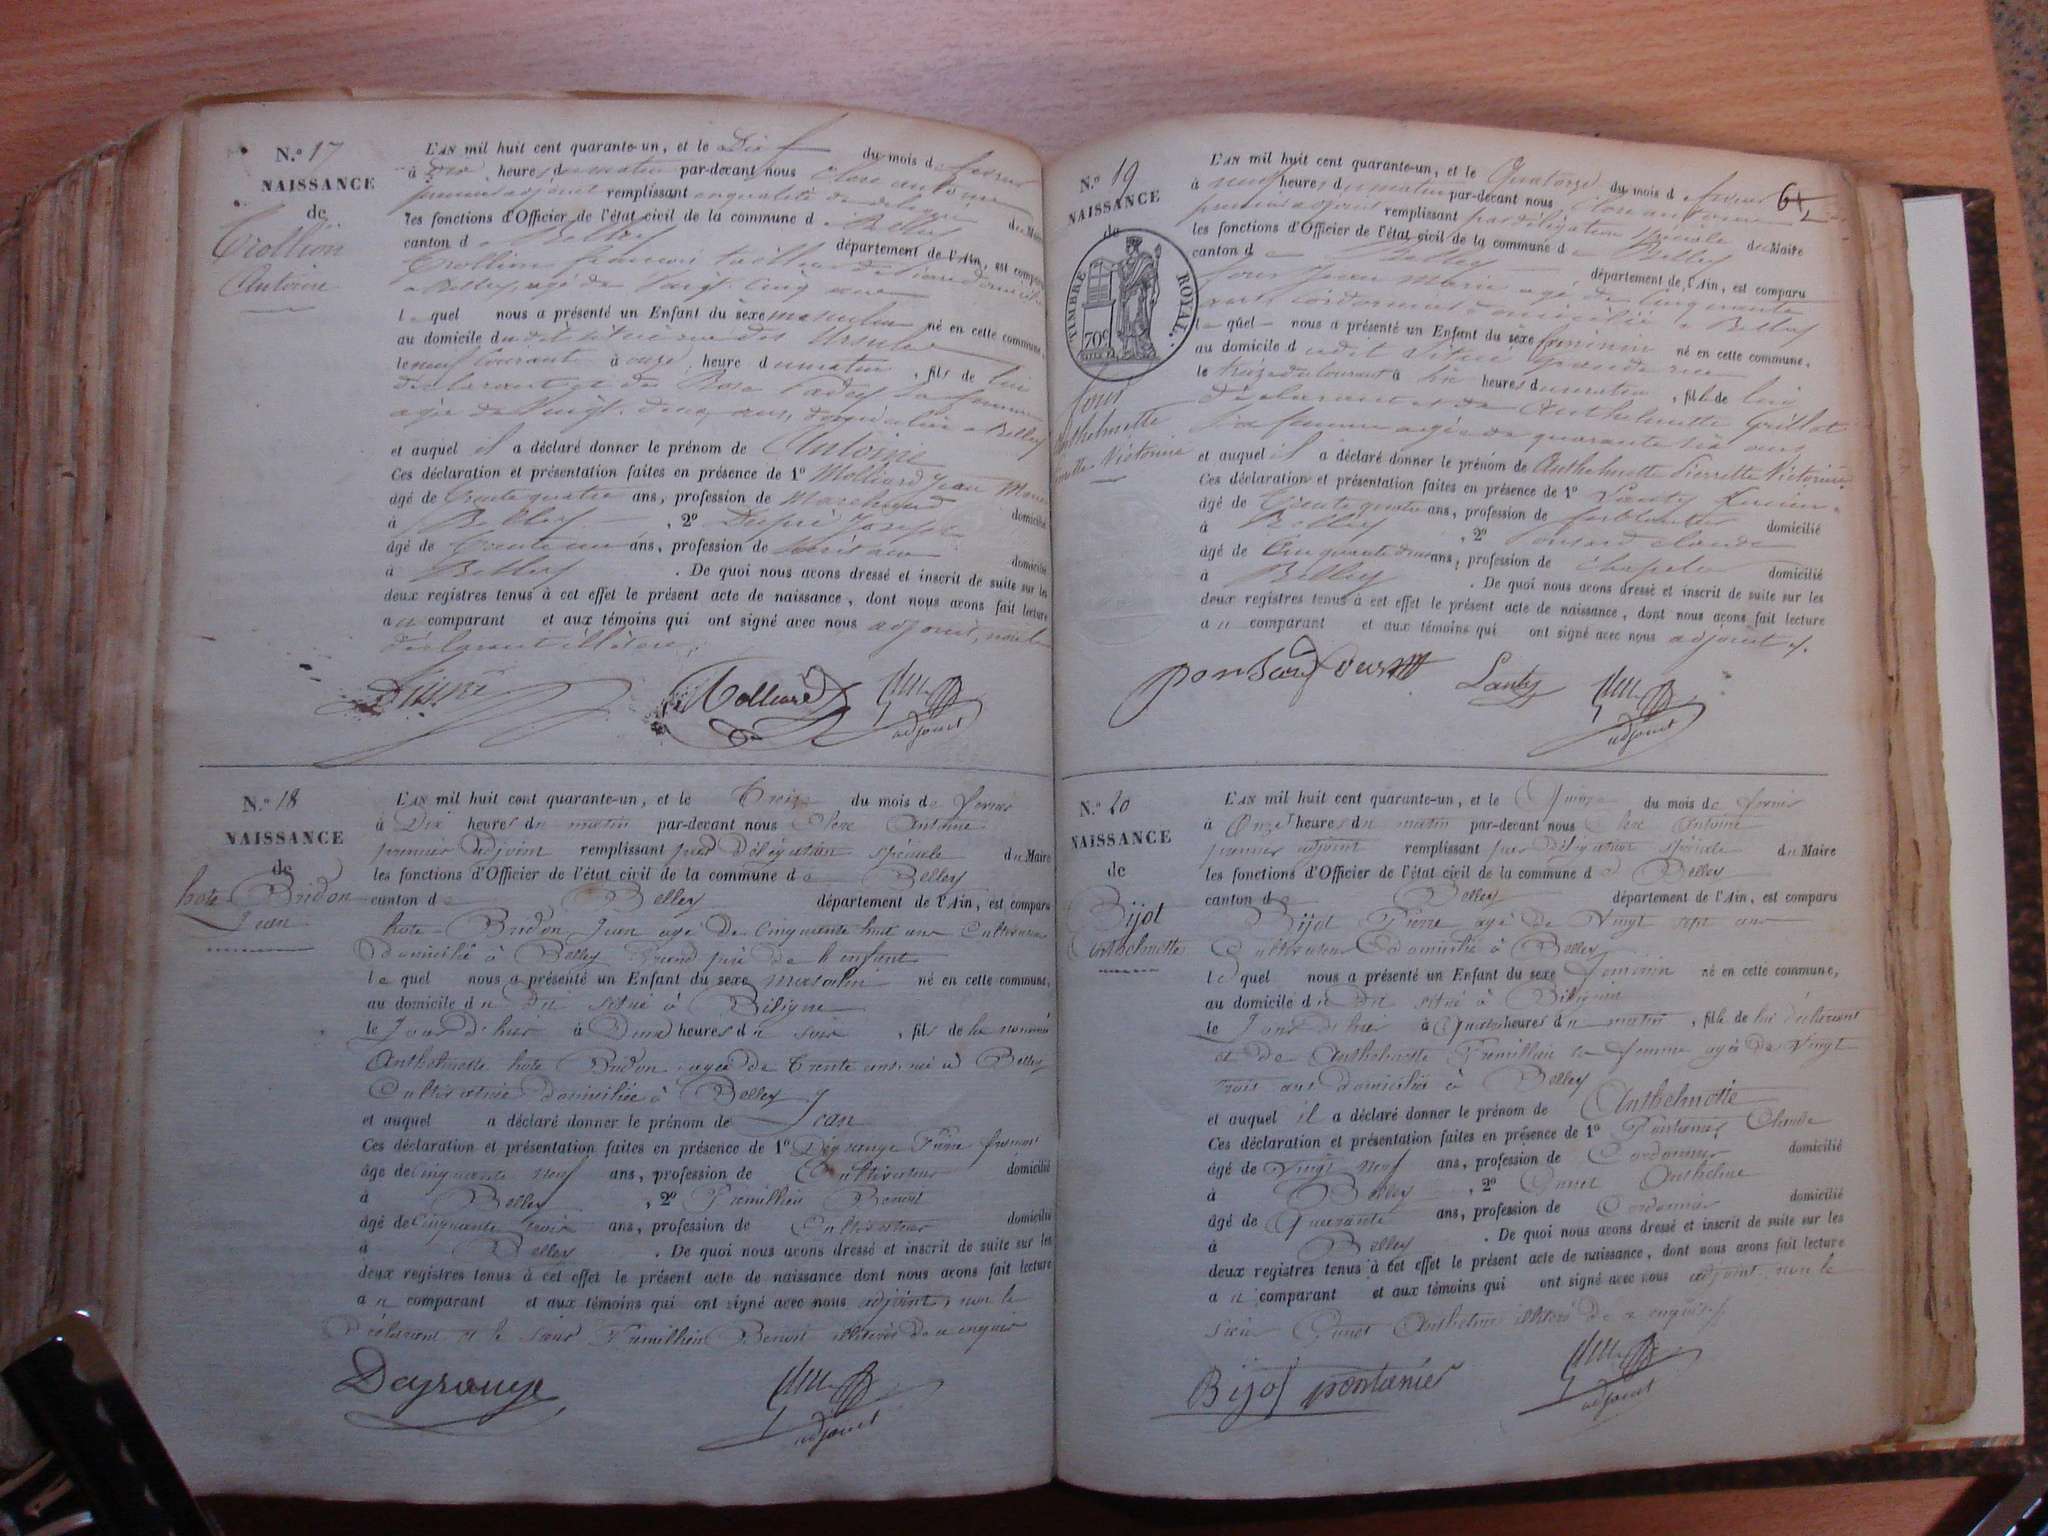 N.º 17
NAISSANCE
de
Crollion
Antoine
L'AN mil huit cent quarante-un, et le Dix du mois de fevrier
à heures du matin par-devant nous Clerc antoine
premier adjoint remplissant en qualité de
les fonctions d'Officier de l'état civil de la commune d Belley du Maire
canton d Belley département de l'Ain, est comparu
Crollion françois tailleur de pierre domicilié
a Belley, agé de vingt cinq ans
le quel nous a présenté un Enfant du sexe masculin né en cette commune,
au domicile du dit situé rue des Ursules
le neuf Courant à onze heure du matin, fils de lui
déclarant et de Rose sa femme
agée de vingt cinq ans, domiciliée a Belley
et auquel il a déclaré donner le prénom de Antoine
Ces déclaration et présentation faites en présence de 1º Molliard Jean Marie
âgé de trente quatre ans, profession de Marchand domicilié
à Belley, 2º Joseph
âgé de trente un ans, profession de domicilié
à Belley. De quoi nous avons dressé et inscrit de suite sur les
deux registres tenus à cet effet le présent acte de naissance, dont nous avons fait lecture
au comparant et aux témoins qui ont signé avec nous adjoint, non le
déclarant illiteré
Molliard
adjoint
N.º 18
NAISSANCE
de
hote Bridon
Jean
L'AN mil huit cent quarante-un, et le Treize du mois de fevrier
à Dix heures du matin par-devant nous Clerc Antoine
premier adjoint remplissant par délégation spéciale du Maire
les fonctions d'Officier de l'état civil de la commune de Belley
canton de Belley département de l'Ain, est comparu
hote Bridon Jean agé de Cinquante huit ans Cultivateur
domicilié à Belley Grand père de l'enfant
le quel nous a présenté un Enfant du sexe masculin né en cette commune,
au domicile du dit situé à Billigne
le Jour d'hier à Deux heures du soir, fils de la nommée
Anthelmette hote Bridon agée de trente ans née à Belley
Cultivatrice domiciliée à Belley
et auquel a déclaré donner le prénom de Jean
Ces déclaration et présentation faites en présence de 1º Deyrouge Pierre
âgé de Cinquante neuf ans, profession de Cultivateur domicilié
à Belley, 2º Premillieu Benoit
âgé de Cinquante trois ans, profession de Cultivateur domicilié
à Belley. De quoi nous avons dressé et inscrit de suite sur les
deux registres tenus à cet effet le présent acte de naissance dont nous avons fait lecture
au comparant et aux témoins qui ont signé avec nous adjoint, non le
Déclarant et le sieur Premillieu Benoit illiterés de ce enquis
Deyrouge
adjoint
64
N.º 19
NAISSANCE
de
TIMBRE ROYAL.
70c
Anthelmette
Pierrette Victorine
L'AN mil huit cent quarante-un, et le Quatorze du mois de fevrier
à neuf heures du matin par-devant nous Clerc antoine
premier adjoint remplissant par délégation spéciale du Maire
les fonctions d'Officier de l'état civil de la commune de Belley
canton de Belley, département de l'Ain, est comparu
Jean Marie agé de Cinquante
ans, cordonnier domicilié a Belley
le quel nous a présenté un Enfant du sexe féminin né en cette commune,
au domicile du dit situé grande rue
le treize du courant à six heures du matin, fille de lui
déclarant et de Anthelmette Grillot
sa femme agée de quarante ans
et auquel il a déclaré donner le prénom de Anthelmette Pierrette Victorine
Ces déclaration et présentation faites en présence de 1º Lauty
âgé de trente quatre ans, profession de ferblantier domicilié
à Belley, 2º Ponsard claude
âgé de Cinquante deux ans, profession de Chapelier domicilié
à Belley. De quoi nous avons dressé et inscrit de suite sur les
deux registres tenus à cet effet le présent acte de naissance, dont nous avons fait lecture
au comparant et aux témoins qui ont signé avec nous adjoint
ponsard Lauty
adjoint
N.º 20
NAISSANCE
de
Bijot
Anthelmette
L'AN mil huit cent quarante-un, et le Quinze du mois de fevrier
à Onze heures du matin par-devant nous Clerc Antoine
premier adjoint remplissant par délégation spéciale du Maire
les fonctions d'Officier de l'état civil de la commune de Belley
canton de Belley département de l'Ain, est comparu
Bijot Pierre agé de Vingt sept ans
Cultivateur domicilié à Belley
le quel nous a présenté un Enfant du sexe féminin né en cette commune,
au domicile du dit situé à Billignin
le Jour d'hier à Quatre heures du matin, fille de lui déclarant
et de Anthelmette Premillieu sa femme agée de Vingt
trois ans domiciliée à Belley
et auquel il a déclaré donner le prénom de Anthelmette
Ces déclaration et présentation faites en présence de 1º Pontanier Claude
âgé de Vingt neuf ans, profession de Cordonnier domicilié
à Belley, 2º Anthelme
âgé de Quarante ans, profession de Cordonnier domicilié
à Belley. De quoi nous avons dressé et inscrit de suite sur les
deux registres tenus à cet effet le présent acte de naissance, dont nous avons fait lecture
au comparant et aux témoins qui ont signé avec nous adjoint non le
sieur Anthelme illiteré de ce enquis
Bijot pontanier
adjoint